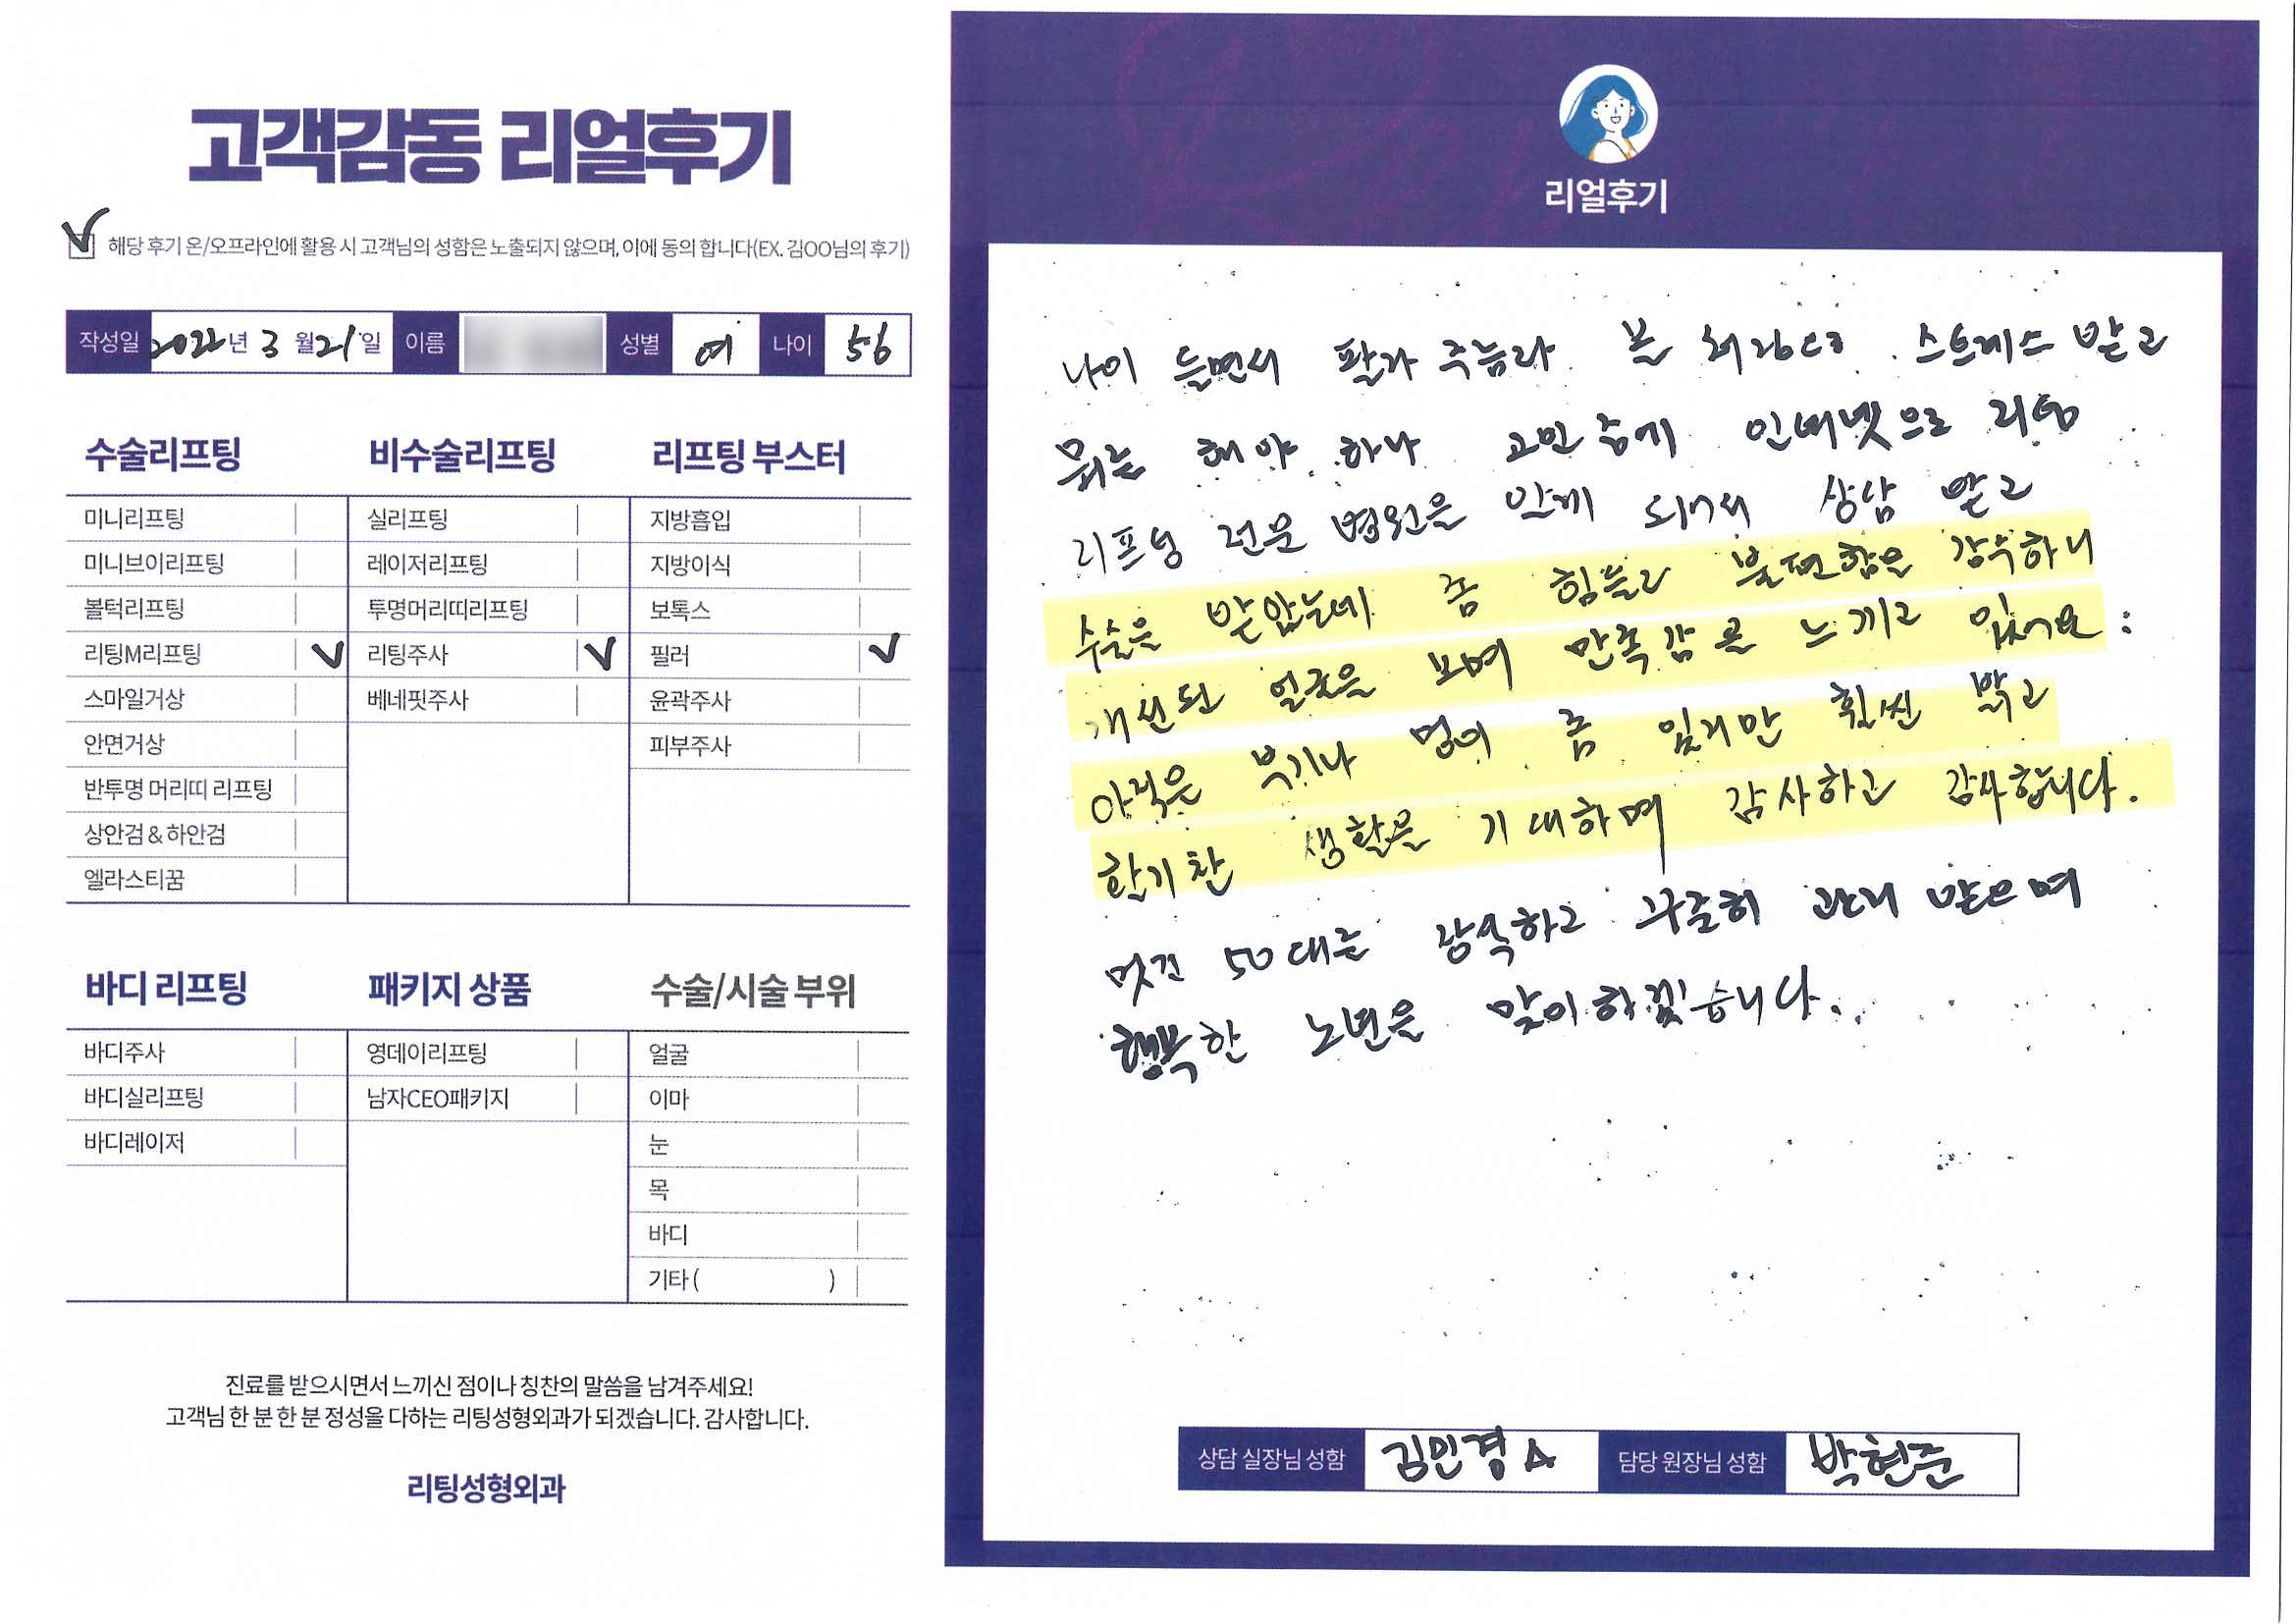 고객감동 리얼후기
해당 후기 온/오프라인에 활용 시 고객님의 성함은 노출되지 않으며, 이에 동의 합니다(EX. 김OO님의 후기)
작성일 2022년 3월 21일 이름 성별 여 나이 56
수술리프팅
미니리프팅
미니브이리프팅
볼턱리프팅
리팅M리프팅 V
스마일거상
안면거상
반투명 머리띠 리프팅
상안검 & 하안검
엘라스티꿈
비수술리프팅
실리프팅
레이저리프팅
투명머리띠리프팅
리팅주사 V
베네핏주사
리프팅 부스터
지방흡입
지방이식
보톡스
필러 V
윤곽주사
피부주사
바디 리프팅
바디주사
바디실리프팅
바디레이저
패키지 상품
영데이리프팅
남자CEO패키지
수술/시술 부위
얼굴
이마
눈
목
바디
기타 ( )
진료를 받으시면서 느끼신 점이나 칭찬의 말씀을 남겨주세요!
고객님 한 분 한 분 정성을 다하는 리팅성형외과가 되겠습니다. 감사합니다.
리팅성형외과
리얼후기
나이 들면서 스트레스 받고
뭐든 해야 하나 고민 중에 인터넷으로 리팅
리프팅 전문 병원을 알게 되어서 상담 받고
수술을 받았는데 좀 힘들고 불편함을 감수하니
개선된 얼굴을 보며 만족감을 느끼고 있어요
아직은 부기나 멍이 좀 있지만 훨씬 밝고
활기찬 생활을 기대하며 감사하고 감사합니다.
멋진 50대를 장식하고 꾸준히 관리 받으며
행복한 노년을 맞이하겠습니다.
상담 실장님 성함 김민경A 담당 원장님 성함 박현준